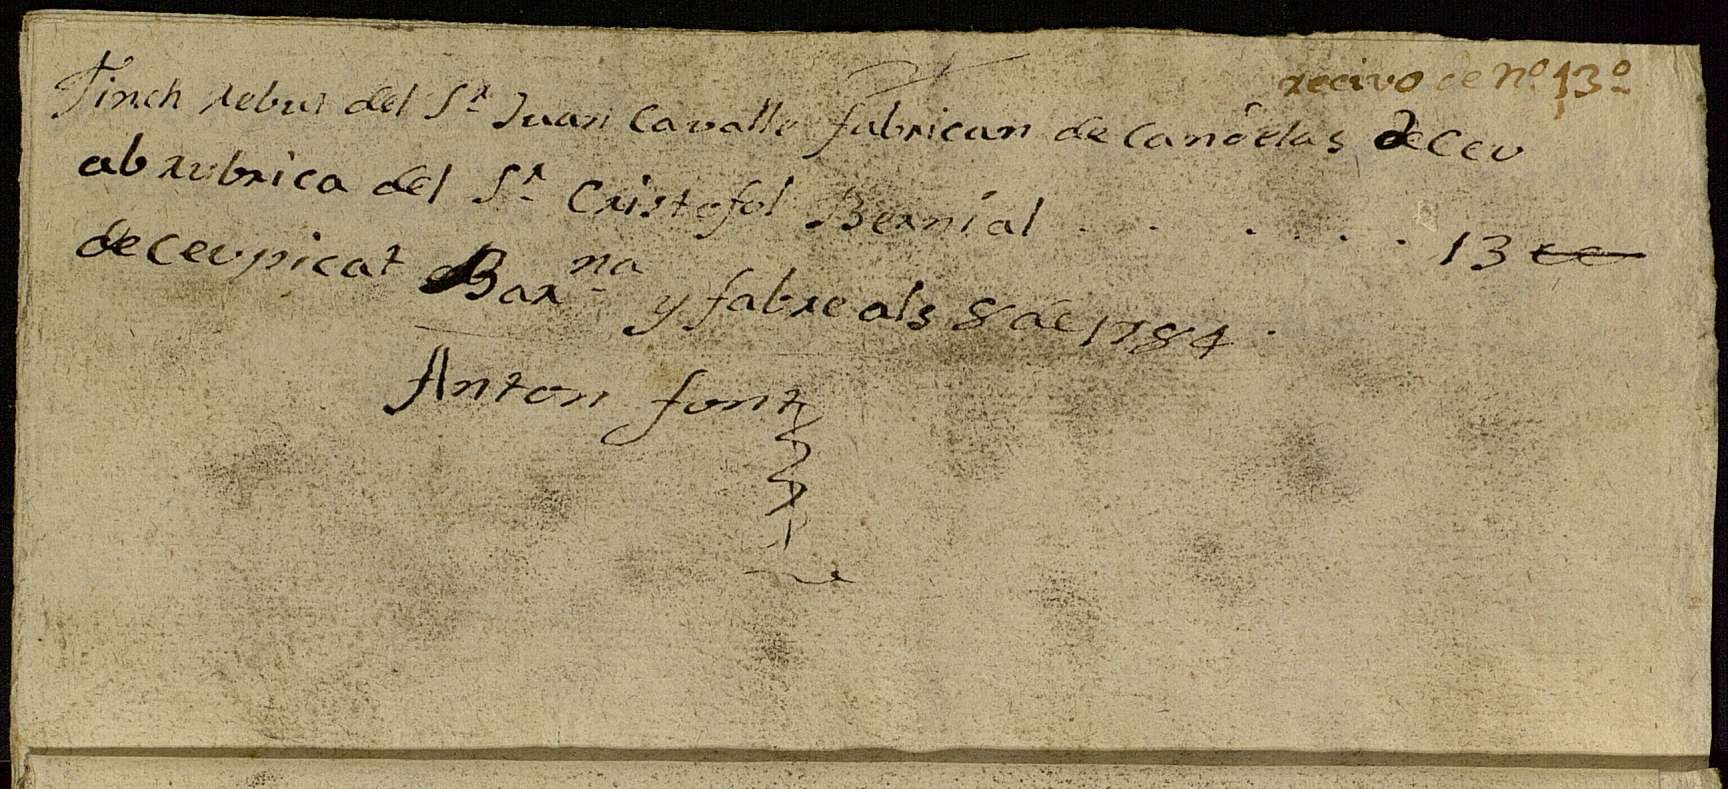 recivo de nº. 13º
Tinch rebut del Sr. Juan Cavalle fabrican de Candelas de ceu
ab rubrica del Sr. Cristofol Bernial . . . . . . 13
de ceu picat Barna. y fabre als 8 de 1784.
Anton font